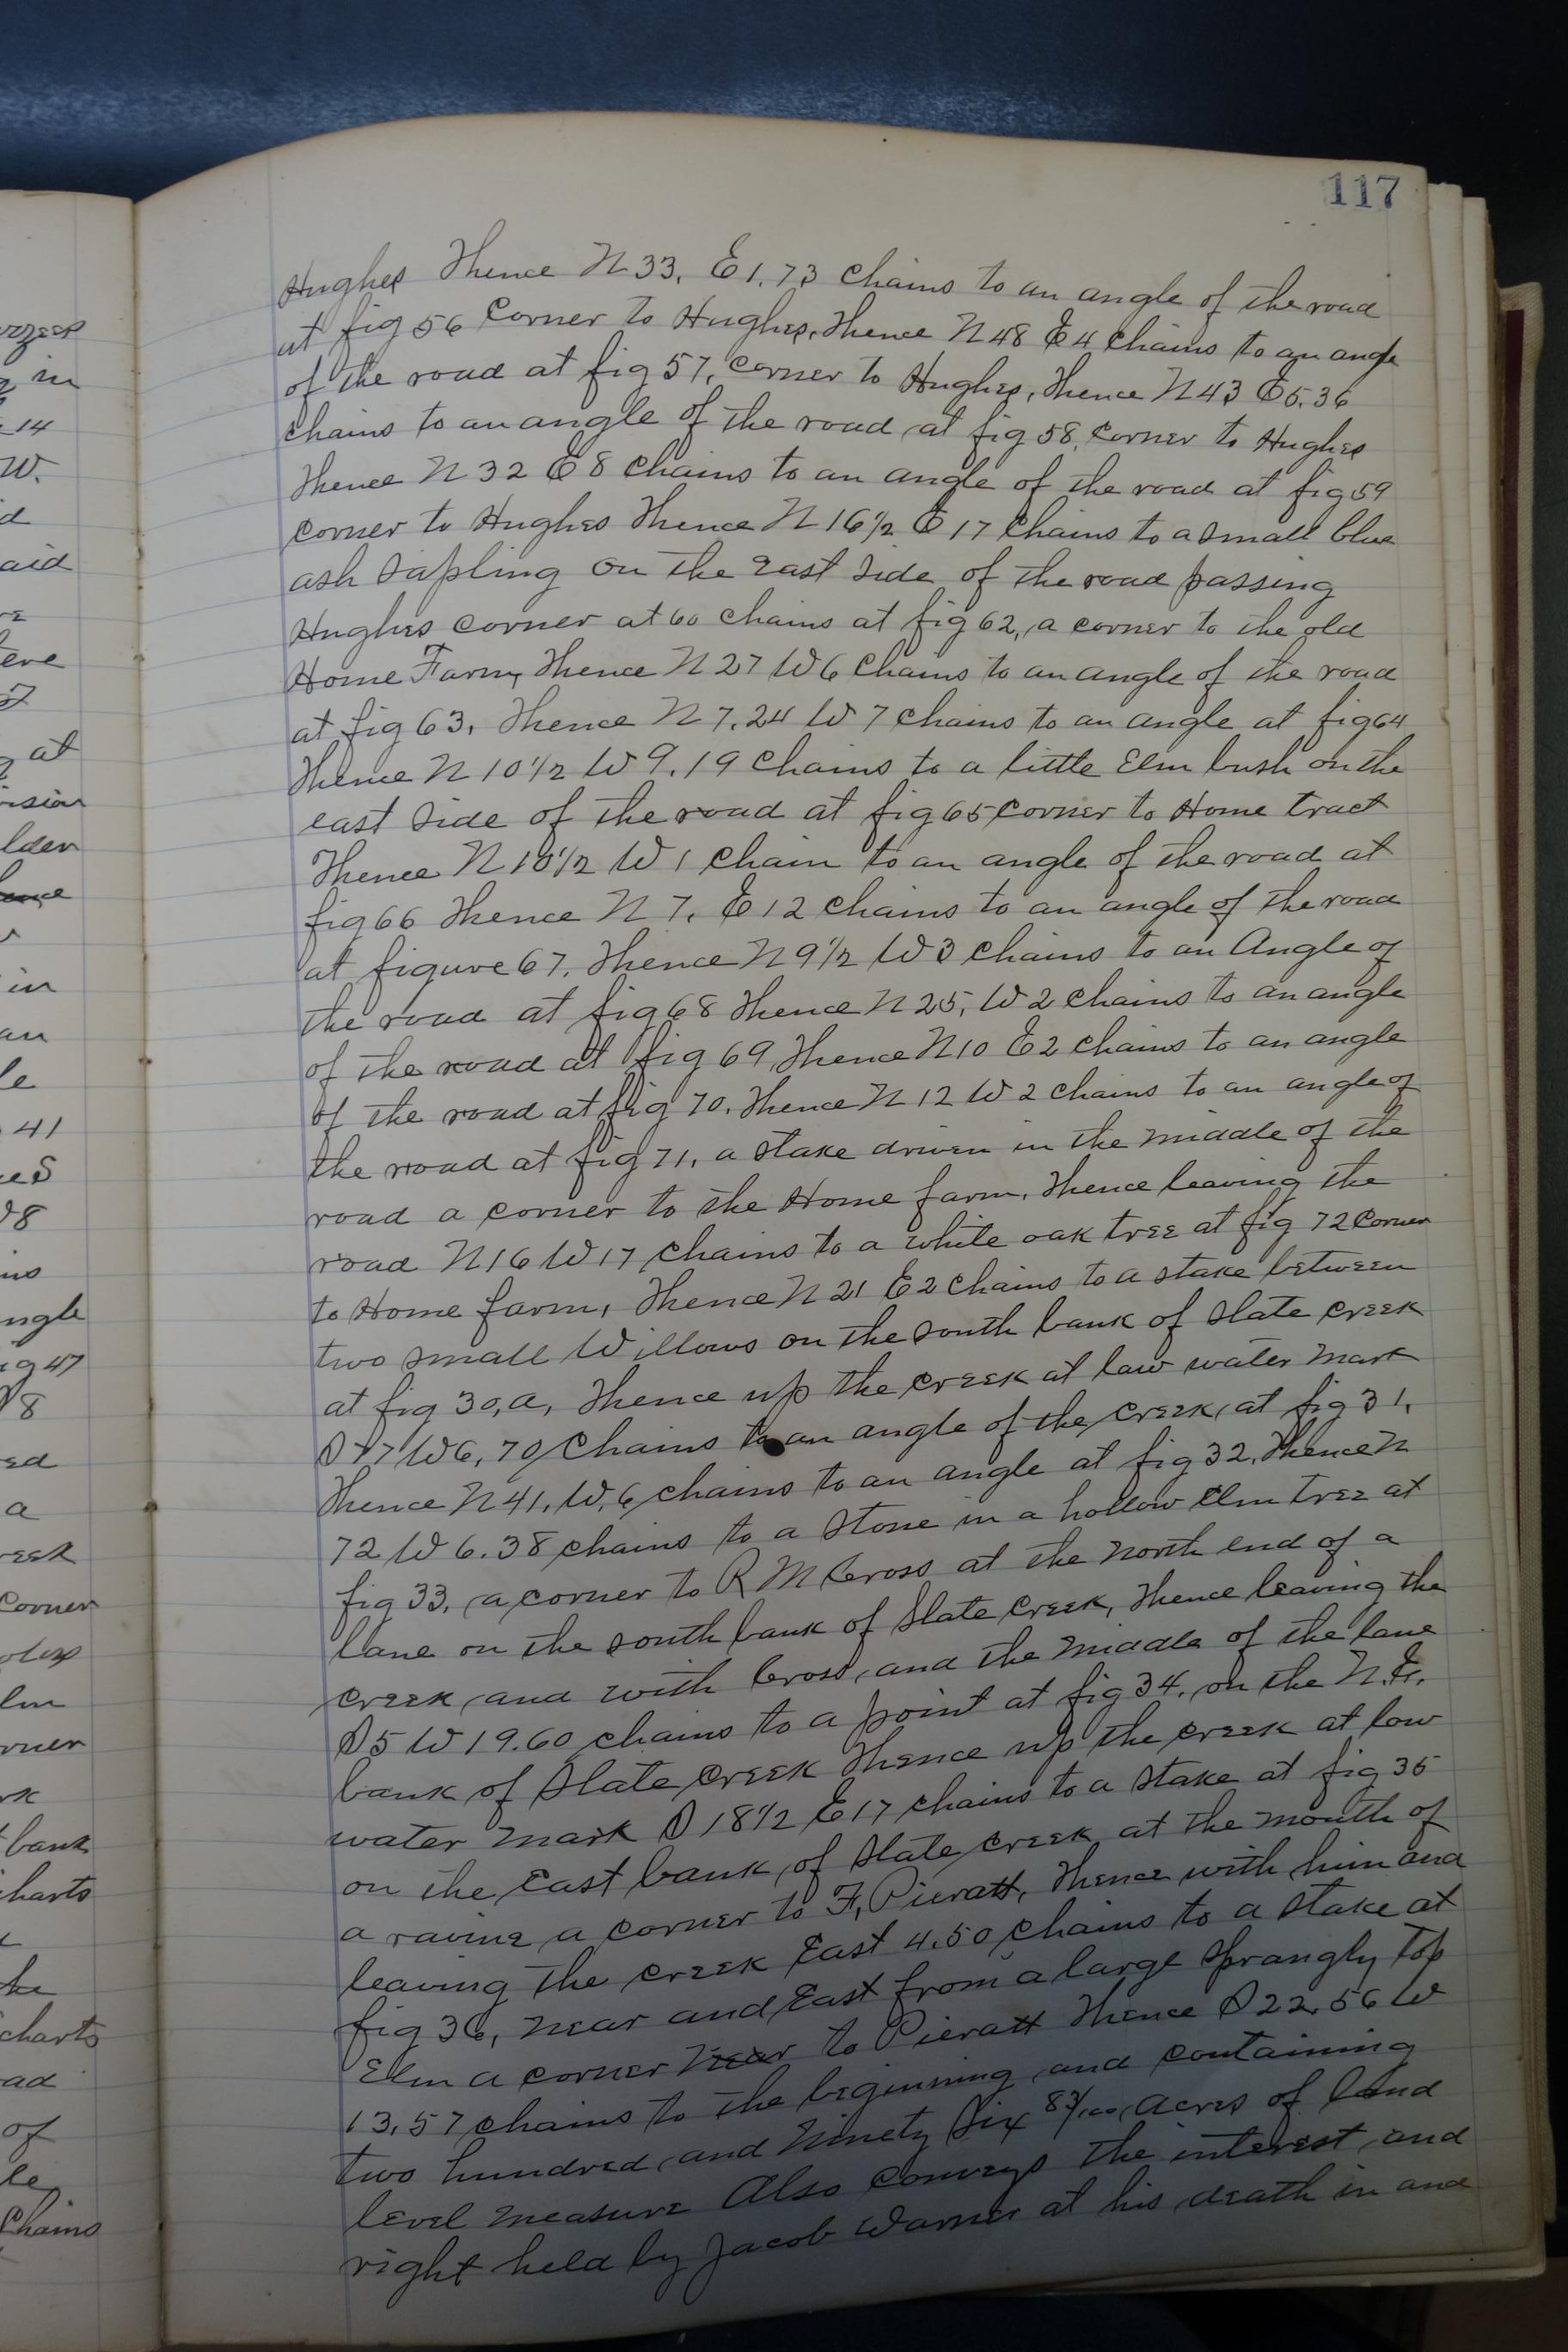 117
Hughes Thence N 33, E 1.73 Chains to an angle of the road
at fig 56 Corner to Hughes, Thence N 48 E 4 Chains to an angle
of the road at fig 57, Corner to Hughes, Thence N 43 E 5.36
Chains to an angle of the road at fig 58, Corner to Hughes
Thence N 32 E 8 Chains to an angle of the road at fig 59
corner to Hughes Thence N 16 1/2 E 17 Chains to a small blue
ash sapling on the East side of the road passing
Hughes corner at 60 chains at fig 62, a corner to the old
Home Farm, Thence N 27 W 6 Chains to an angle of the road
at fig 63, Thence N 7.24 W 7 Chains to an angle at fig 64
Thence N 10 1/2 W 9.19 Chains to a little Elm bush on the
east side of the road at fig 65 corner to Home tract
Thence N 10 1/2 W 1 Chain to an angle of the road at
fig 66 Thence N 7, E 12 Chains to an angle of the road
at figure 67, Thence N 9 1/2 W 3 Chains to an Angle of
the road at fig 68 Thence N 25, W 2 Chains to an angle
of the road at fig 69, Thence N 10 E 2 Chains to an angle
of the road at fig 70, Thence N 12 W 2 Chains to an angle of
the road at fig 71, a stake driven in the middle of the
road a corner to the Home farm, Thence leaving the
road N 16 W 17 Chains to a white oak tree at fig 72 Corner
to Home farm, Thence N 21 E 2 Chains to a stake between
two small Willows on the south bank of Slate creek
at fig 30, a, Thence up the creek at law water mark
S 77 W 6,70 Chains to an angle of the creek, at fig 31,
Thence N 41, W, 6 chains to an angle at fig 32, Thence N
72 W 6.38 chains to a Stone in a hollow Elm tree at
fig 33, a corner to R M Cross at the north end of a
lane on the south bank of Slate Creek, Thence leaving the
creek and with Cross, and the middle of the lane
S 5 W 19.60 chains to a point at fig 34, on the N.E.
bank of Slate Creek Thence up the creek at low
water mark S 18 1/2 E 17 chains to a stake at fig 35
on the East bank of Slate creek at the mouth of
a ravine a corner to F, Pieratt, Thence with him and
leaving the creek East 4.50 chains to a stake at
fig 36, near and East from a large sprangly top
Elm a corner near to Pieratt Thence S 22.56 W
13,57 chains to the beginning and containing
two hundred and Ninety Six 83/100 acres of land
level measure Also conveys the interest and
right held by Jacob Warner at his death in and
in
14
W.
d
aid
eve
at
lder
in
an
le
41
8
ngle
ig 47
8
ed
a
Corner
lm
rner
bank
charts
he
charts
ad
of
le
Chains